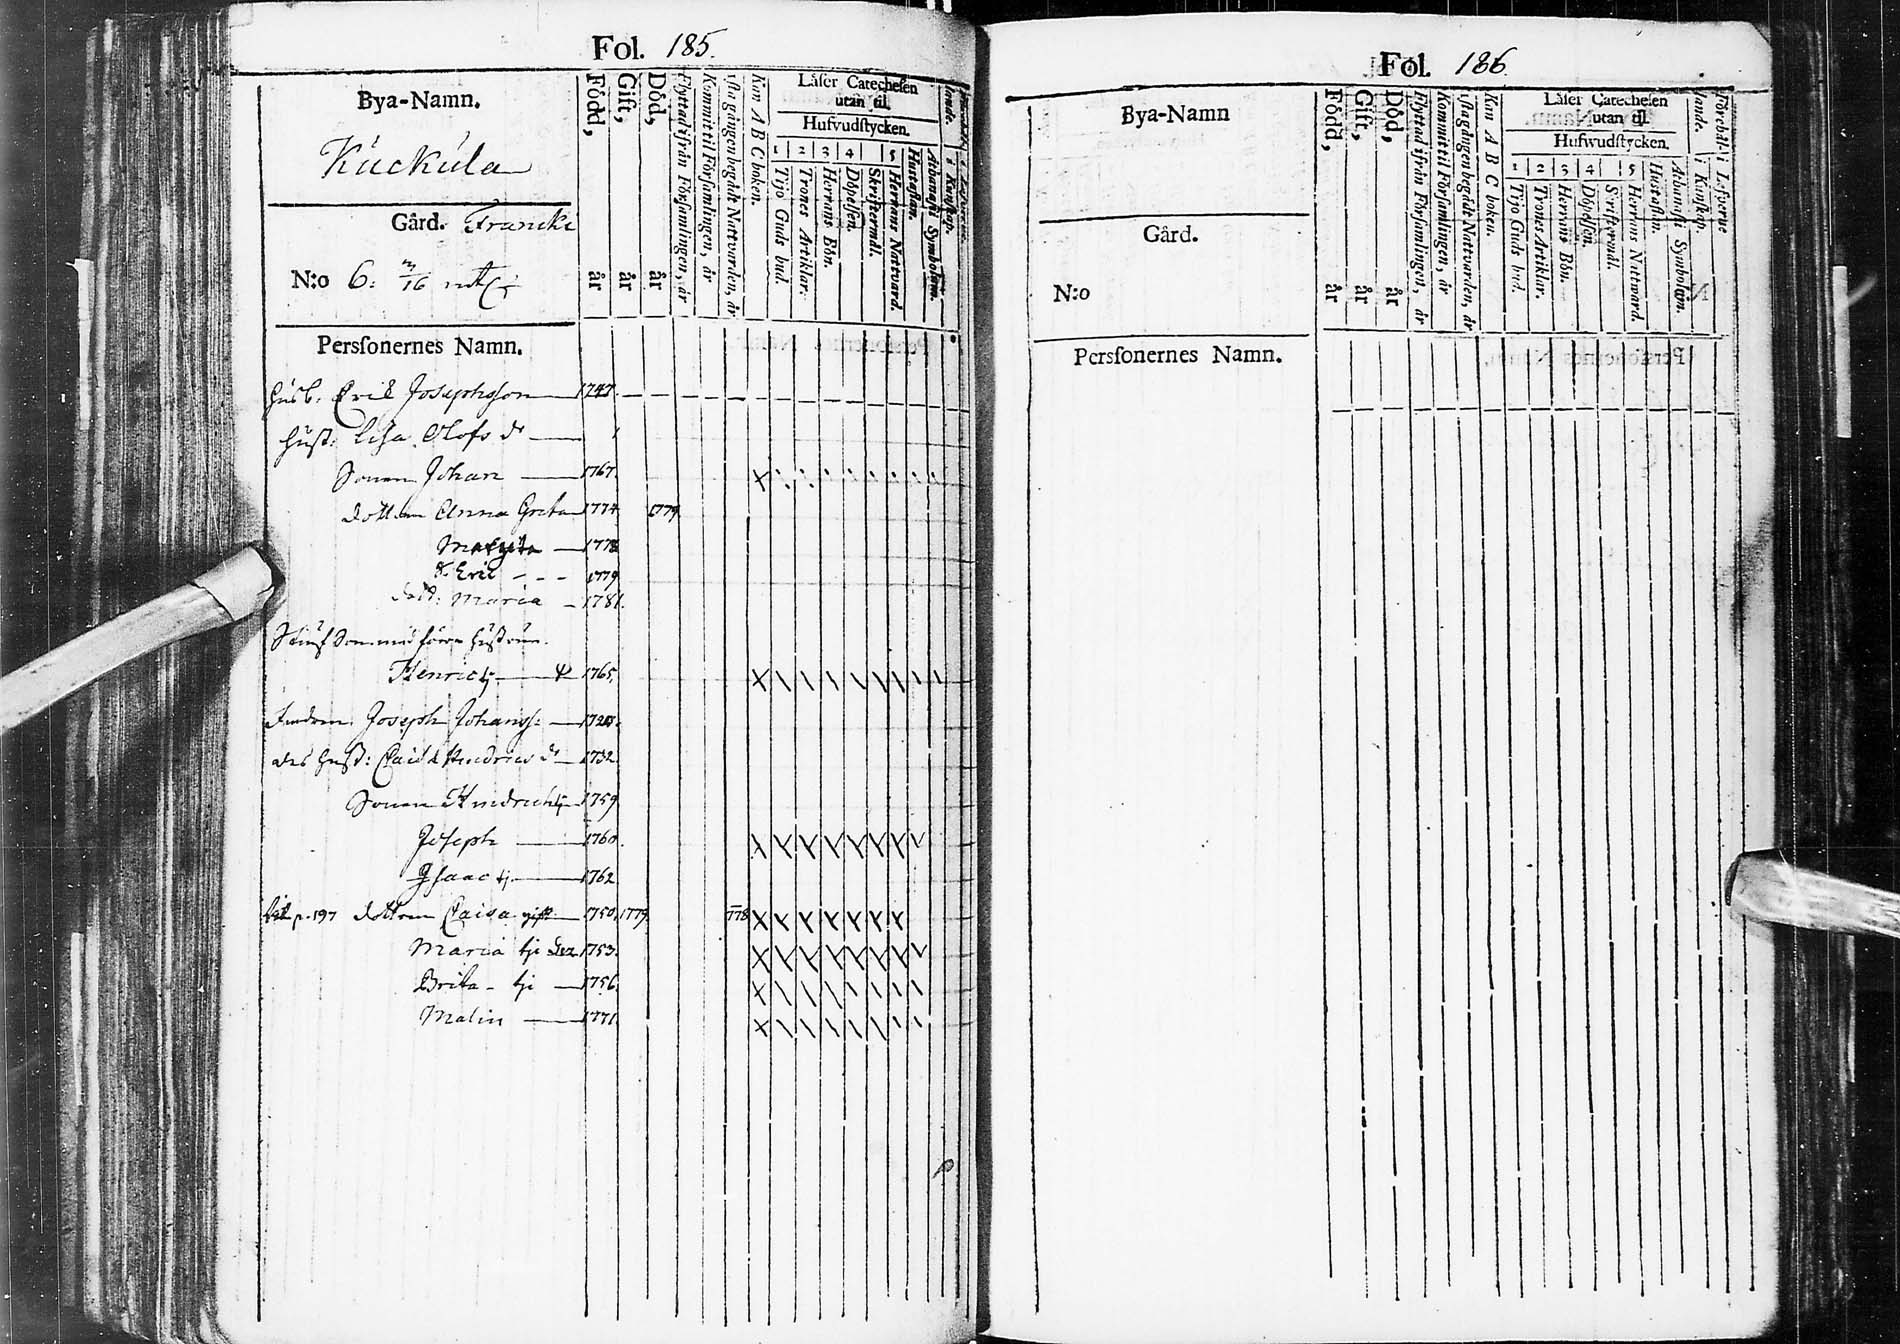 Fol. 185.
Bya-Namn.
Kúckúla
Gård. Francki
N:o 6:
Född, år
Gift, år
Död, år
Flyttad ifrån Församlingen, år
Kommit til Församlingen, år
1sta gången begådt Nattvarden, år
Kan A B C boken.
Läser Catechesen
utan til.
Hufvudstycken.
1 2 3 4 5
Tijo Guds bud.
Trones Artiklar.
Herrans Bön.
Döpelsen.
Skriftermål.
Herrans Natvard.
Hustaflan.
Athanasii Symbolum.
Perssonernes Namn.
Husb: Eric Josephsson 1747.
Hust: Lisa Olofs dr
Sonen Johan 1767.
Dottren Anna Greta 1774 1779.
Margeta
S. Eric - - - 1779
Dott: Maria - 1781.
Henric tj 1765.
Joseph Johanss: 1720.
des Hust: Caisa Hindrics dr 1732
Sonen Hindrich tj 1759
Joseph 1760.
Isaac tj. 1762
p. 197 Dottren Caisa gift 1750. 1779. 1778
Maria tj 1753.
Brita - tj 1756.
Malin 1771.
Fol. 186.
Bya-Namn
Gård.
N:o
Född, år
Gift, år
Död, år
Flyttad ifrån Församlingen, år
Kommit til Församlingen, år
1sta gången begådt Nattvarden, år
Kan A B C boken.
Läser Catechesen
utan til.
Hufwudstycken.
1 2 3 4 5
Tijo Guds bud.
Trones Artiklar.
Herrans Bön.
Döpelsen.
Skriftermål.
Herrans Natward.
Hustaflan.
Athanasii Symbolum.
i Kunskap.
i Lefverne
Perssonernes Namn.